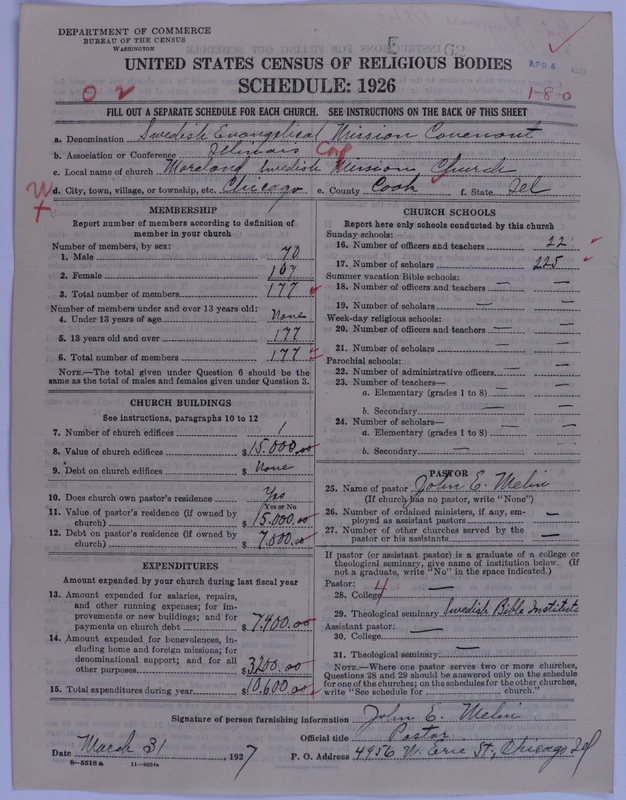 DEPARTMENT OF COMMERCE
BUREAU OF THE CENSUS
WASHINGTON
E
APR 4
UNITED STATES CENSUS OF RELIGIOUS BODIES
SCHEDULE: 1926
0 2
1-8-0
FILL OUT A SEPARATE SCHEDULE FOR EACH CHURCH. SEE INSTRUCTIONS ON THE BACK OF THIS SHEET
a. Denomination Swedish Evangelical Mission Covenant
b. Association or Conference Illinois
c. Local name of church Moreland Swedish Mission Church
d. City, town, village, or township, etc. Chicago e. County Cook f. State Ill
MEMBERSHIP
Report number of members according to definition of member in your church
Number of members, by sex:
1. Male 70
2. Female 107
3. Total number of members 177
Number of members under and over 13 years old:
4. Under 13 years of age None
5. 13 years old and over 177
6. Total number of members 177
NOTE.—The total given under Question 6 should be the same as the total of males and females given under Question 3.
CHURCH BUILDINGS
See instructions, paragraphs 10 to 12
7. Number of church edifices 1
8. Value of church edifices $ 15.000.00
9. Debt on church edifices $ None
10. Does church own pastor's residence Yes
Yes or No
11. Value of pastor's residence (if owned by church) $ 15.000.00
12. Debt on pastor's residence (if owned by church) $ 7.800.00
EXPENDITURES
Amount expended by your church during last fiscal year
13. Amount expended for salaries, repairs, and other running expenses; for improvements or new buildings; and for payments on church debt $ 7.400.00
14. Amount expended for benevolences, including home and foreign missions; for denominational support; and for all other purposes $ 3200.00
15. Total expenditures during year $ 10.600.00
CHURCH SCHOOLS
Report here only schools conducted by this church
Sunday schools:
16. Number of officers and teachers 22
17. Number of scholars 225
Summer vacation Bible schools:
18. Number of officers and teachers — —
19. Number of scholars — —
Week-day religious schools:
20. Number of officers and teachers — —
21. Number of scholars — —
Parochial schools:
22. Number of administrative officers — —
23. Number of teachers—
a. Elementary (grades 1 to 8) — —
b. Secondary — —
24. Number of scholars—
a. Elementary (grades 1 to 8) — —
b. Secondary — —
PASTOR
25. Name of pastor John E. Melin
(If church has no pastor, write "None")
26. Number of ordained ministers, if any, employed as assistant pastors —
27. Number of other churches served by the pastor or his assistants —
If pastor (or assistant pastor) is a graduate of a college or theological seminary, give name of institution below. (If not a graduate, write "No" in the space indicated.)
Pastor:
28. College —
29. Theological seminary Swedish Bible Institute
Assistant pastor:
30. College —
31. Theological seminary —
NOTE.—Where one pastor serves two or more churches, Questions 28 and 29 should be answered only on the schedule for one of the churches; on the schedules for the other churches, write "See schedule for church."
Signature of person furnishing information John E. Melin
Official title Pastor
Date March 31, 1927 P. O. Address 4956 W. Erie St., Chicago Ill
8—5518 a 11—9554a